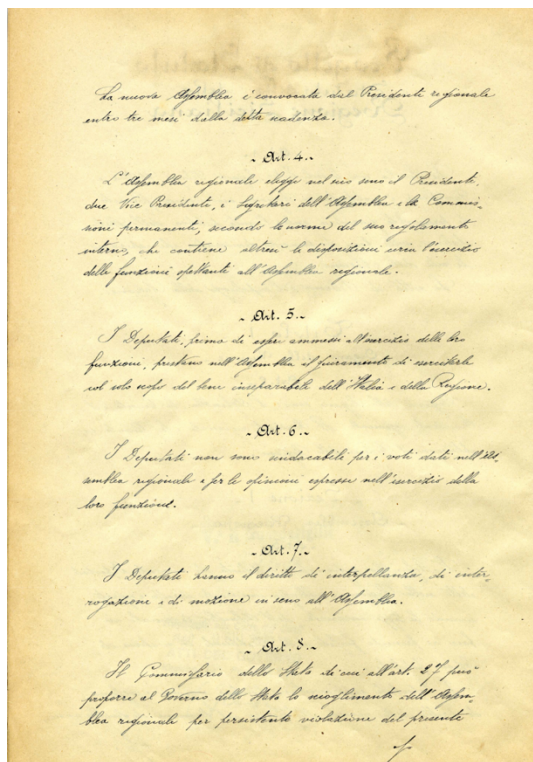 La nuova Assemblea è convocata dal Presidente regionale
entro tre mesi dalla detta scadenza.
- Art. 4.-
L'Assemblea regionale elegge nel suo seno il Presidente,
due Vice Presidenti, i Segretari dell'Assemblea e le Commis-
sioni permanenti, secondo le norme del suo regolamento
interno, che contiene altresì le disposizioni circa l'esercizio
delle funzioni spettanti all'Assemblea regionale.
- Art. 5.-
I Deputati, prima di essere ammessi all'esercizio delle loro
funzioni, prestano nell'Assemblea il giuramento di esercitarle
col solo scopo del bene inseparabile dell'Italia e della Regione.
- Art. 6.-
I Deputati non sono sindacabili per i voti dati nell'As-
semblea regionale e per le opinioni espresse nell'esercizio della
loro funzione.
- Art. 7.-
I Deputati hanno il diritto di interpellanza, di inter-
rogazione e di mozione in seno all'Assemblea.
- Art. 8.-
Il Commissario dello Stato di cui all'art. 27 può
proporre al Governo dello Stato lo scioglimento dell'Assem-
blea regionale per persistente violazione del presente